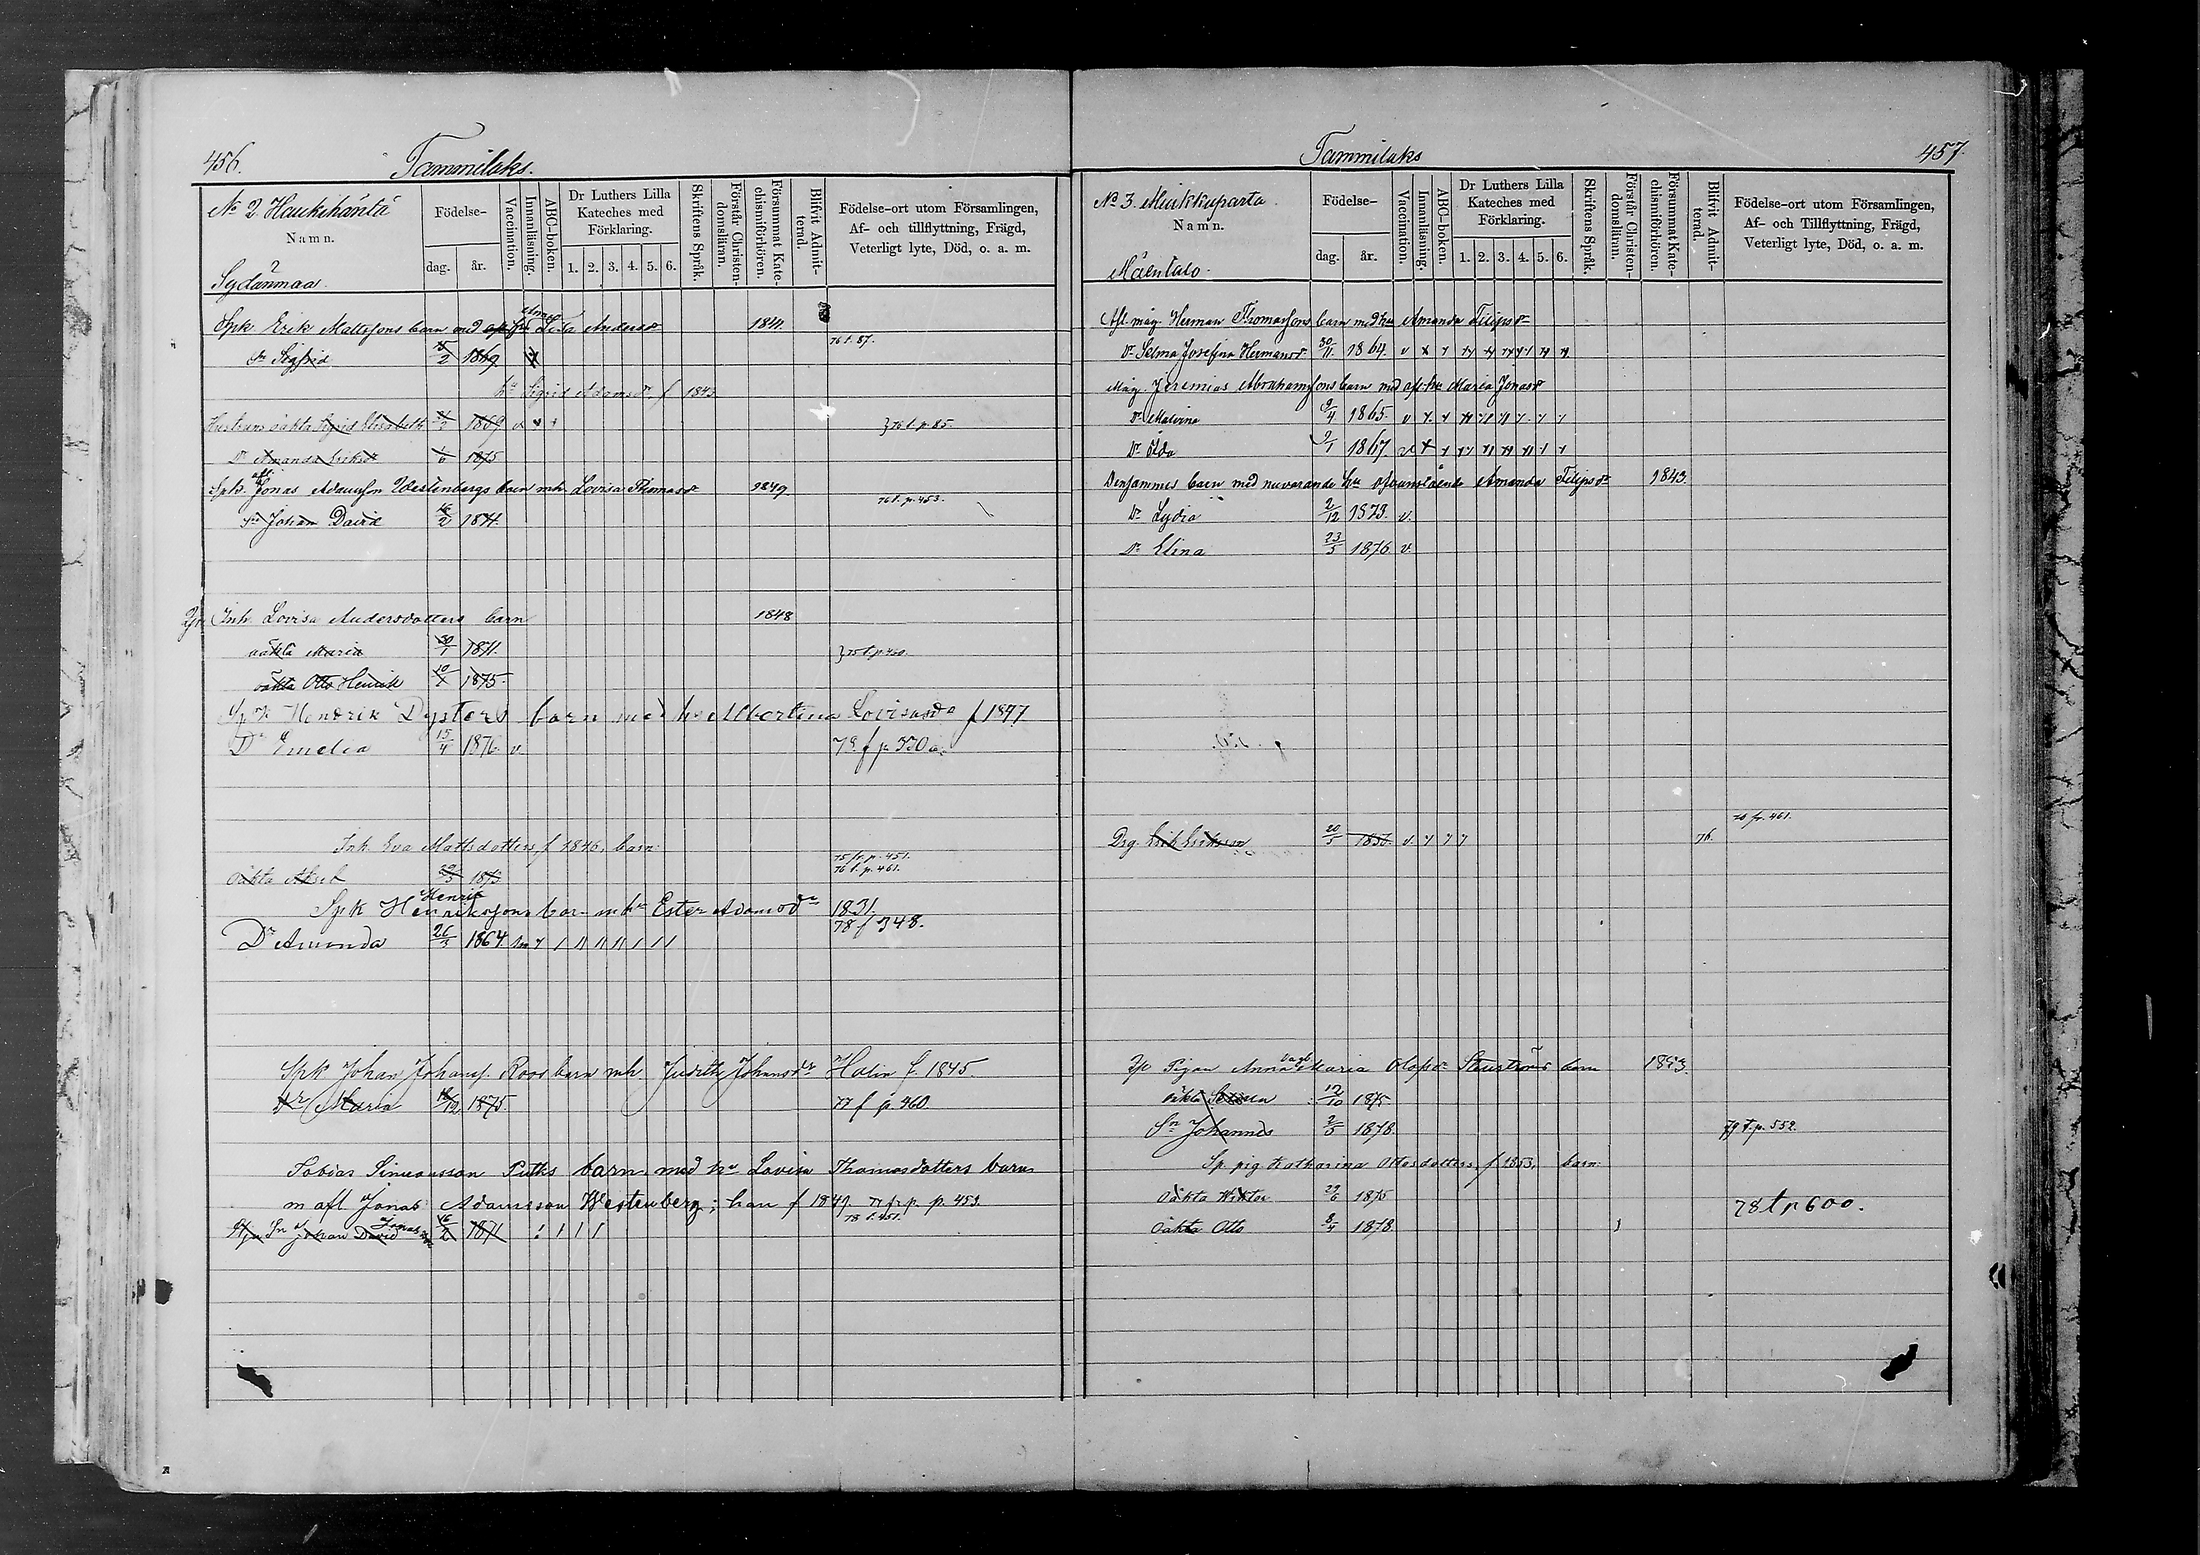 456.
Tammilaks.
No 2. Haukihäntä
Namn.
Sydänmaa.
Födelse-
dag.
år.
Vaccination.
Innanläsning.
ABC-boken.
Dr Luthers Lilla
Kateches med
Förklaring.
1. 2. 3. 4. 5. 6.
Skriftens Språk.
Förstår Christen-
domslänn.
Försummat Kate-
chismiförhören.
Blifvit Admit-
terad.
Födelse-ort utom Församlingen,
Af- och tillflyttning, Frägd,
Veterligt lyte, Död, o. a. m.
Spk Erik Mattssons barn med Lisa Andersdr 184
Sn Sigfrid 2 1869 76 t. 87.
hu Sigrid Adamsdr f 1843
Hustruns oäkta Sigrid Elisabeth 2 1869 v } 76 t. p. 85.
Dr Amanda Eriksdr 6 1875
Spk. afl. Jonas Adamsson Westenbergs barn mh Lovisa Thomasdr 1849
Sn Johan David 16/2 1871. 76 t. p. 453.
Inh. Lovisa Andersdotters barn 1848
oäkta Maria 30/1 1871. } 75 t. p. 460.
oäkta Otto Henrik 10/1 1875.
Spk Hendrik Dysters barn med hu Albertina Lovisasdr f 1847
Dr Emelia 15/4 1876. v. 79 f p 550 a.
Inh. Eva Mattsdotters f 1846, barn:
75 fr. p. 451.
oäkta Aksel 1873 76 t. p. 461.
Spk Henrik Henrikssons bar- m hu Ester Adamsdr 1831.
Dr Amanda 26/3 1864 78 f 348.
Spk Johan Johanss. Roos barn mh. Judith Johansdr Halin f. 1845.
Dr Maria /12 1875. 77 f p. 460.
Tobias Simonsson Putks barn med hu Lovisa Thomasdotters barn
m afl Jonas Adamsson Westenberg; han f 1849. 77 fr p. p. 453.
78 t. 451.
Sn Johan David Jonasson 16/2 1871
457.
Tammilaks
No 3. Miekkaparta.
Namn.
Mäentalo.
Födelse-
dag.
år.
Vaccination.
Innanläsning.
ABC-boken.
Dr Luthers Lilla
Kateches med
Förklaring.
1. 2. 3. 4. 5. 6.
Skriftens Språk.
Förstår Christen-
domslänn.
Försummat Kate-
chismiförhören.
Blifvit Admit-
terad.
Födelse-ort utom Församlingen,
Af- och Tillflyttning, Frägd,
Veterligt lyte, Död, o. a. m.
Afl. måg. Herman Thomassons barn med hu Amanda Filipsdr
Dr Selma Josefina Hermansdr 30/11. 1864. v
Måg. Jeremias Abrahamssons barn med afl. hu Maria Jonasdr
Dr Malvina 9/4 1865. v
Dr Alda 9/1 1867. v
Densammes barn med nuvarande hu ofvanstående Amanda Filipsdr 1843.
Dr Lydia 2/12 1873. v.
Dr Elina 23/5 1876 v.
Drg. Erik Eriksson 20/5 1856. v. 76. fr. 461.
Pigan Anna Maria Olofsdr Stenströms barn 1853.
oäkta Selma 12/10 1875
Sn Johannes 2/5 1878. 79 t. p. 552.
Sp. pig. Katharina Ottosdotters, f 1853. barn:
Oäkta Wiktor 29/6 1875
78 t p 600.
Oäkta Otto 8/4 1878.